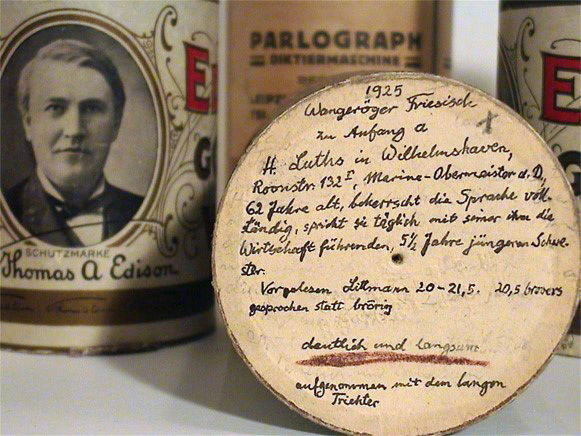 PARLOGRAPH
DIKTIERMASCHINE
SCHUTZMARKE
Thomas A Edison
1925
Wangeröger Friesisch
zu Anfang a
H. Luths in Wilhelmshaven,
Roonstr. 132 I, Marine-Obermeister a. D,
62 Jahre alt, beherrscht die Sprache voll-
ständig, spricht sie täglich mit seiner ihm die
Wirtschaft führenden, 5½ Jahre jüngeren Schwe-
ster.
Vorgelesen Littmann 20-21,5. 20,5 brövers
gesprochen statt brörig
deutlich und langsam
aufgenommen mit dem langen
Trichter